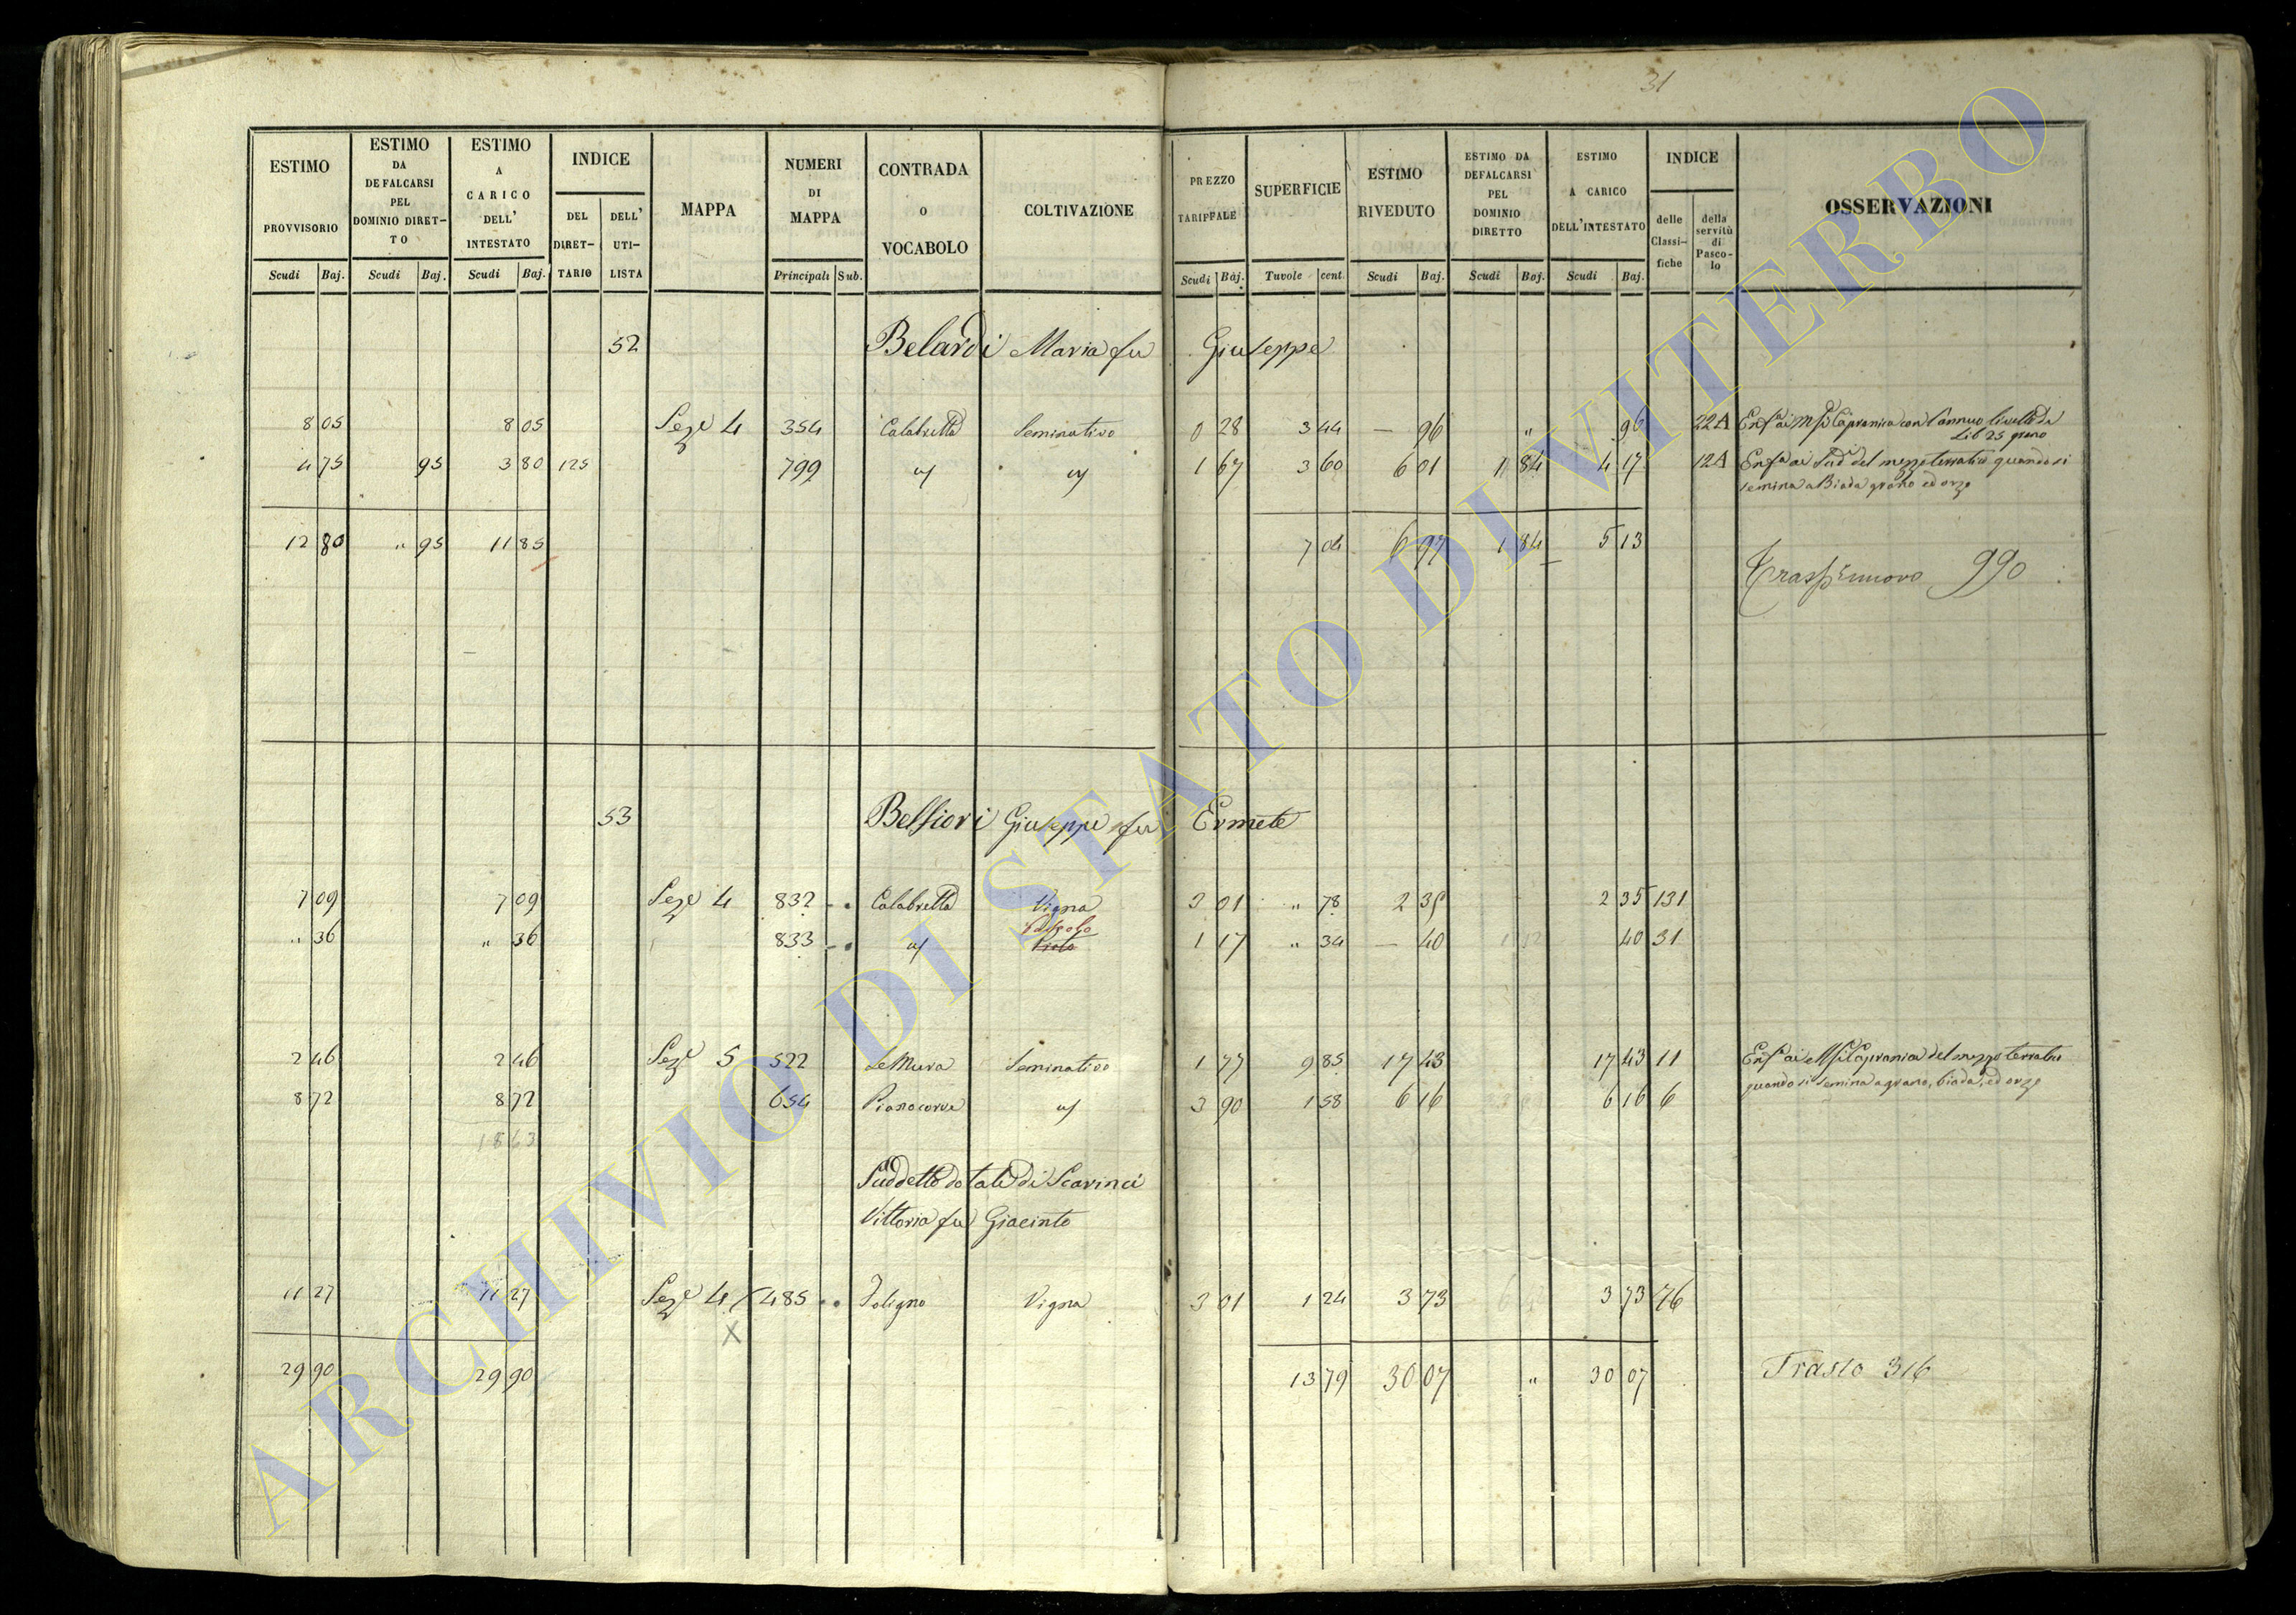 31
ESTIMO PROVVISORIO Scudi Baj. ESTIMO DA DEFALCARSI PEL DOMINIO DIRETTO Scudi Baj. ESTIMO A CARICO DELL' INTESTATO Scudi Baj. INDICE DEL DIRETTARIO DELL' UTILISTA MAPPA NUMERI DI MAPPA Principali Sub. CONTRADA O VOCABOLO COLTIVAZIONE PREZZO TARIFFALE Scudi Baj. SUPERFICIE Tavole cent. ESTIMO RIVEDUTO Scudi Baj. ESTIMO DA DEFALCARSI PEL DOMINIO DIRETTO Scudi Baj. ESTIMO A CARICO DELL'INTESTATO Scudi Baj. INDICE delle Classifiche della servitù di Pascolo OSSERVAZIONI
52 Belardi Maria fu Giuseppe
8 05 8 05 Seze 4 354 Calabretta Seminativo 0 28 3 44 — 96 " 96 22A Enfa ai Capranica con l'annuo livello di
Lib 25 grano
4 75 95 3 80 125 799 " " 1 67 3 60 6 01 1 84 4 17 12A Enfa ai Sudi del mezzo terratico quando si
semina a Biada grano ed orzo
12 80 " 95 11 85 7 04 6 97 1 84 5 13
990
53 Belfiori Giuseppe fu Ermete
7 09 7 09 Seze 4 832 Calabretta Vigna 3 01 " 78 2 35 2 35 131
" 36 " 36 833 " 1 17 " 34 — 40 40 31
2 46 2 46 Seze 5 522 Le Mura Seminativo 1 77 9 85 17 43 17 43 11 Enfa ai Capranica del mezzo terratico
quando si semina a grano, biada, ed orzo
8 72 8 72 654 Pianocorve " 3 90 1 58 6 16 6 16 6
18 63
Suddetto dotale di Scarinci
Vittoria fu Giacinto
11 27 11 27 Seze 4 485 Foligno Vigna 3 01 1 24 3 73 3 73 76
X
29 90 29 90 13 79 30 07 " 30 07 Trasto 316
ARCHIVIO DI STATO DI VITERBO